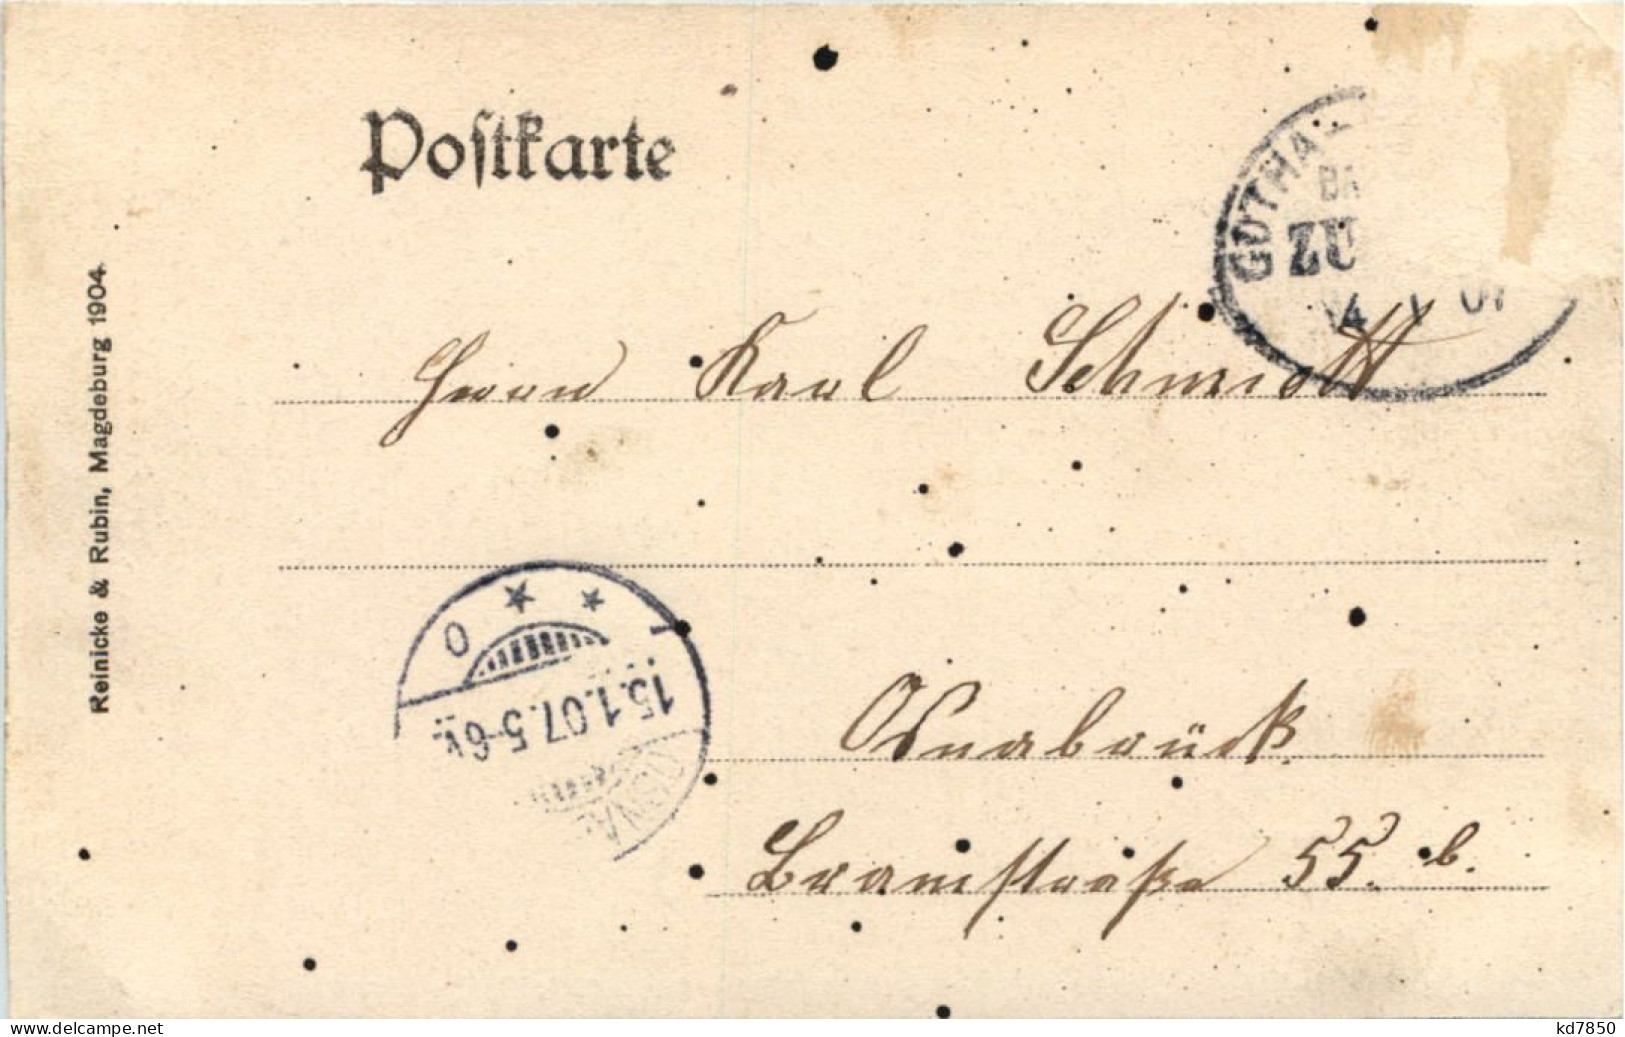 Postkarte
GOTHA
ZU
Herrn Karl Schmidt
Osnabrück
Bramstraße 55. b.
15.1.07.5-6V.
OSNA
Reinicke & Rubin, Magdeburg 1904.
www.delcampe.net
kd7850